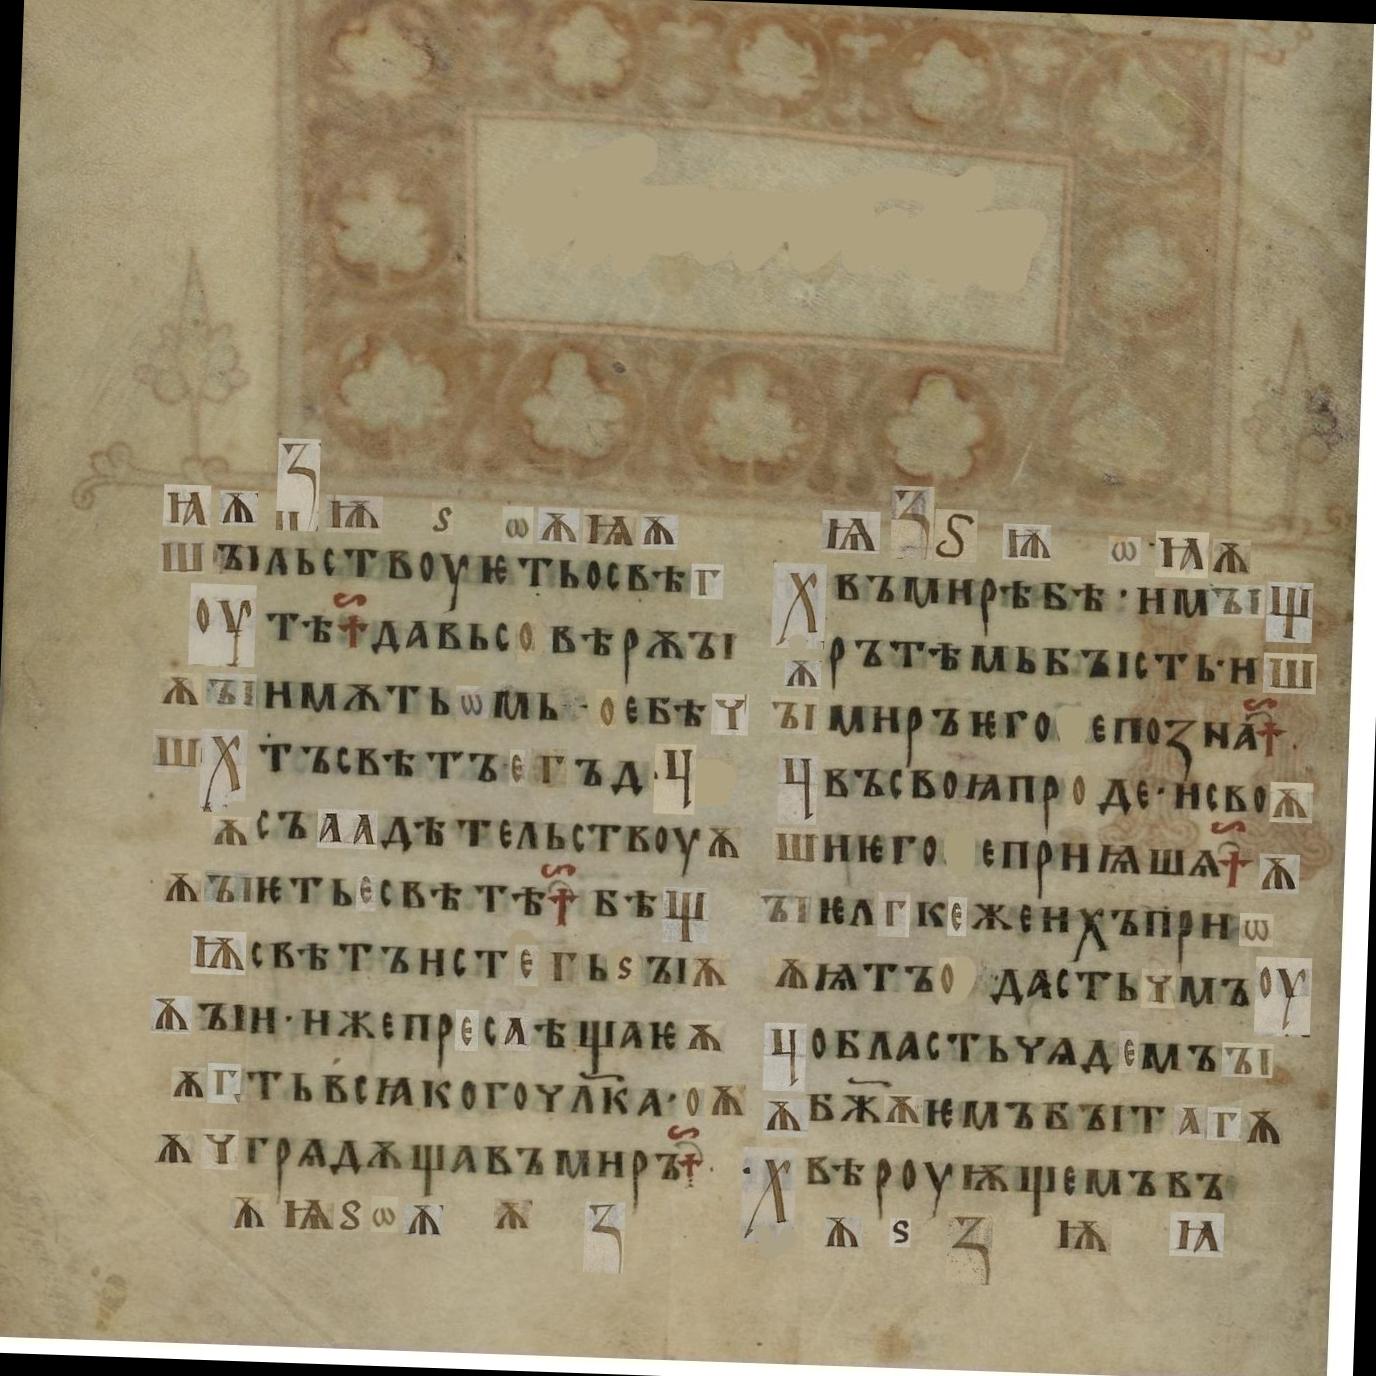 ꙗ ѫ З п ѭ ѕ ѡ ѫ ѩ ѫ
ш ъıльствоуѥтьосвѣ г
оу тѣ давьсо вѣрѫъı
ѫ ъı имѫть ѡ мь · о ебѣ ү
ш х тъсвѣтъ е г ъд · ч
ѫ съ а а дѣтельствоу ѫ
ѫ ъı ѥть е свѣтѣ бѣ щ
ѭ свѣтъист е г ь ѕ ъı ѫ
ѫ ъıи · ижепр е с л ѣщаѥ ѫ
ѫ г тьвсꙗкогоүлка · о ѫ
ѫ ү грѧдѫщавъмиръ
ѫ ѩ ѕ ѡ ѫ ѫ З
ѭ З ѕ ѭ ѡ · ꙗ ѫ
х въмирѣбѣ · имъı щ
ѫ рътѣмьбъıсть · и ш
ъı миръѥго епозна
ч въсвоꙗпр о де · исво ѫ
ш иѥго еприѩшѧ ѫ
ъı ѥл г к е женхъпри ѡ
ѫ ѩтъ о дасть ү мъ оу
ч областьүѧд е мъ ъı
ѫ бж ѫ ѥмъбъıт а г ѫ
· х вѣроуѭщемъвъ
ѫ ѕ З ѭ ꙗ